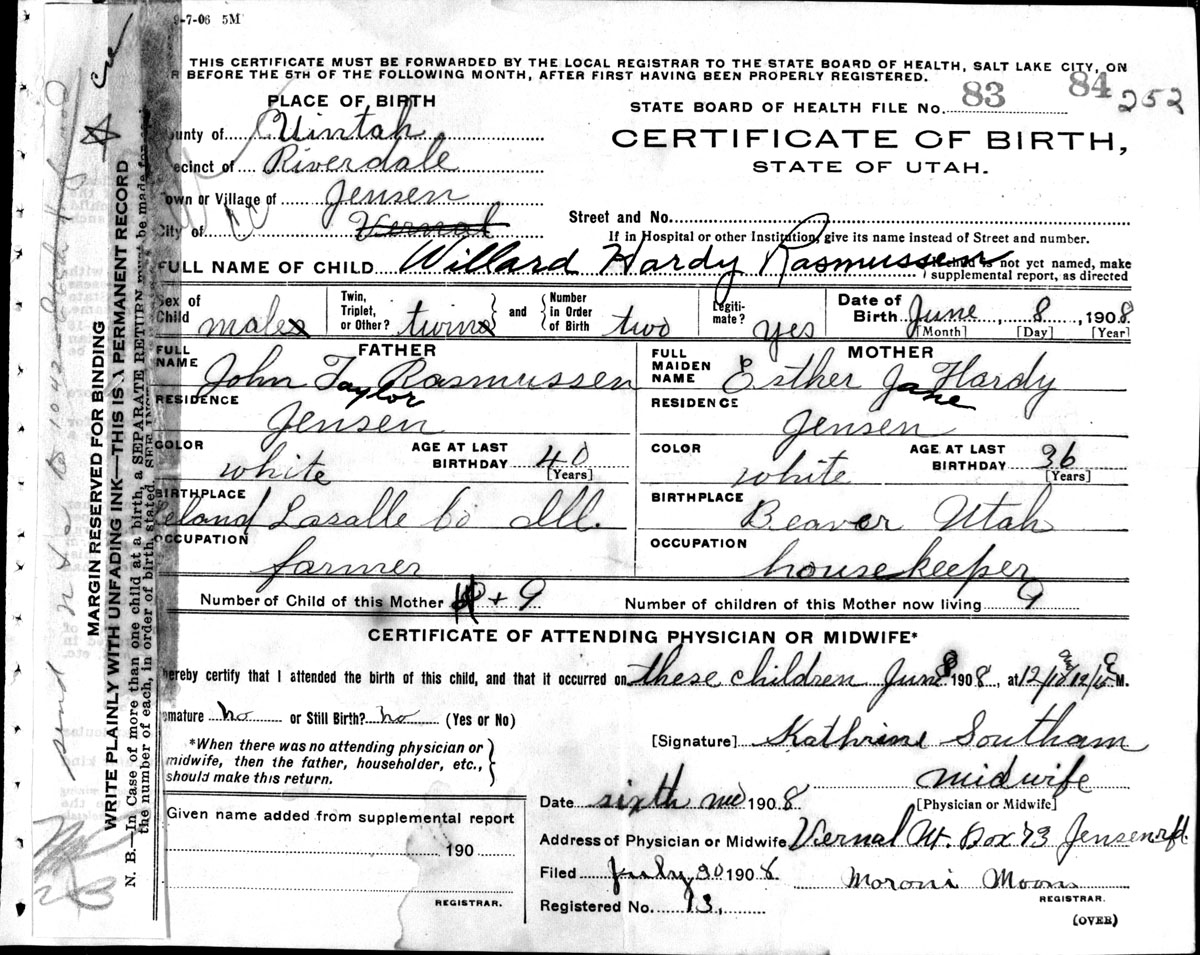 9-7-06 5M
THIS CERTIFICATE MUST BE FORWARDED BY THE LOCAL REGISTRAR TO THE STATE BOARD OF HEALTH, SALT LAKE CITY, ON
R BEFORE THE 5TH OF THE FOLLOWING MONTH, AFTER FIRST HAVING BEEN PROPERLY REGISTERED.
PLACE OF BIRTH
ounty of Uintah
ecinct of Riverdale
own or Village of Jensen
City of Vernal
STATE BOARD OF HEALTH FILE No. 83 84 252
CERTIFICATE OF BIRTH,
STATE OF UTAH.
Street and No.
If in Hospital or other Institution, give its name instead of Street and number.
FULL NAME OF CHILD Willard Hardy Rasmussen
is not yet named, make
supplemental report, as directed
Sex of Child male
Twin, Triplet, or Other? twins
and Number in Order of Birth two
Legiti-mate? yes
Date of Birth June 8, 1908
[Month] [Day] [Year]
FATHER
FULL NAME John Taylor Rasmussen
RESIDENCE Jensen
COLOR white
AGE AT LAST BIRTHDAY 40
[Years]
BIRTHPLACE eland Lasalle Co Ill.
OCCUPATION farmer
MOTHER
FULL MAIDEN NAME Esther Jane Hardy
RESIDENCE Jensen
COLOR white
AGE AT LAST BIRTHDAY 36
[Years]
BIRTHPLACE Beaver Utah
OCCUPATION housekeeper
Number of Child of this Mother + 9
Number of children of this Mother now living 9
CERTIFICATE OF ATTENDING PHYSICIAN OR MIDWIFE*
hereby certify that I attended the birth of this child, and that it occurred on these children June 8 1908, at 12/10 12/15 M.
mature no or Still Birth? no (Yes or No)
*When there was no attending physician or
midwife, then the father, householder, etc.,
should make this return.
[Signature] Kathrine Southam
midwife
[Physician or Midwife]
Date sixth mo 1908
Address of Physician or Midwife Vernal Ut. Box 73 Jensen rfd.
Filed July 30 1908
Moroni Moon
REGISTRAR.
Registered No. 13,
(OVER)
Given name added from supplemental report
190
REGISTRAR.
MARGIN RESERVED FOR BINDING
WRITE PLAINLY WITH UNFADING INK—THIS IS A PERMANENT RECORD
N. B.—In Case of more than one child at a birth, a SEPARATE RETURN must be made for
the number of each, in order of birth, stated.